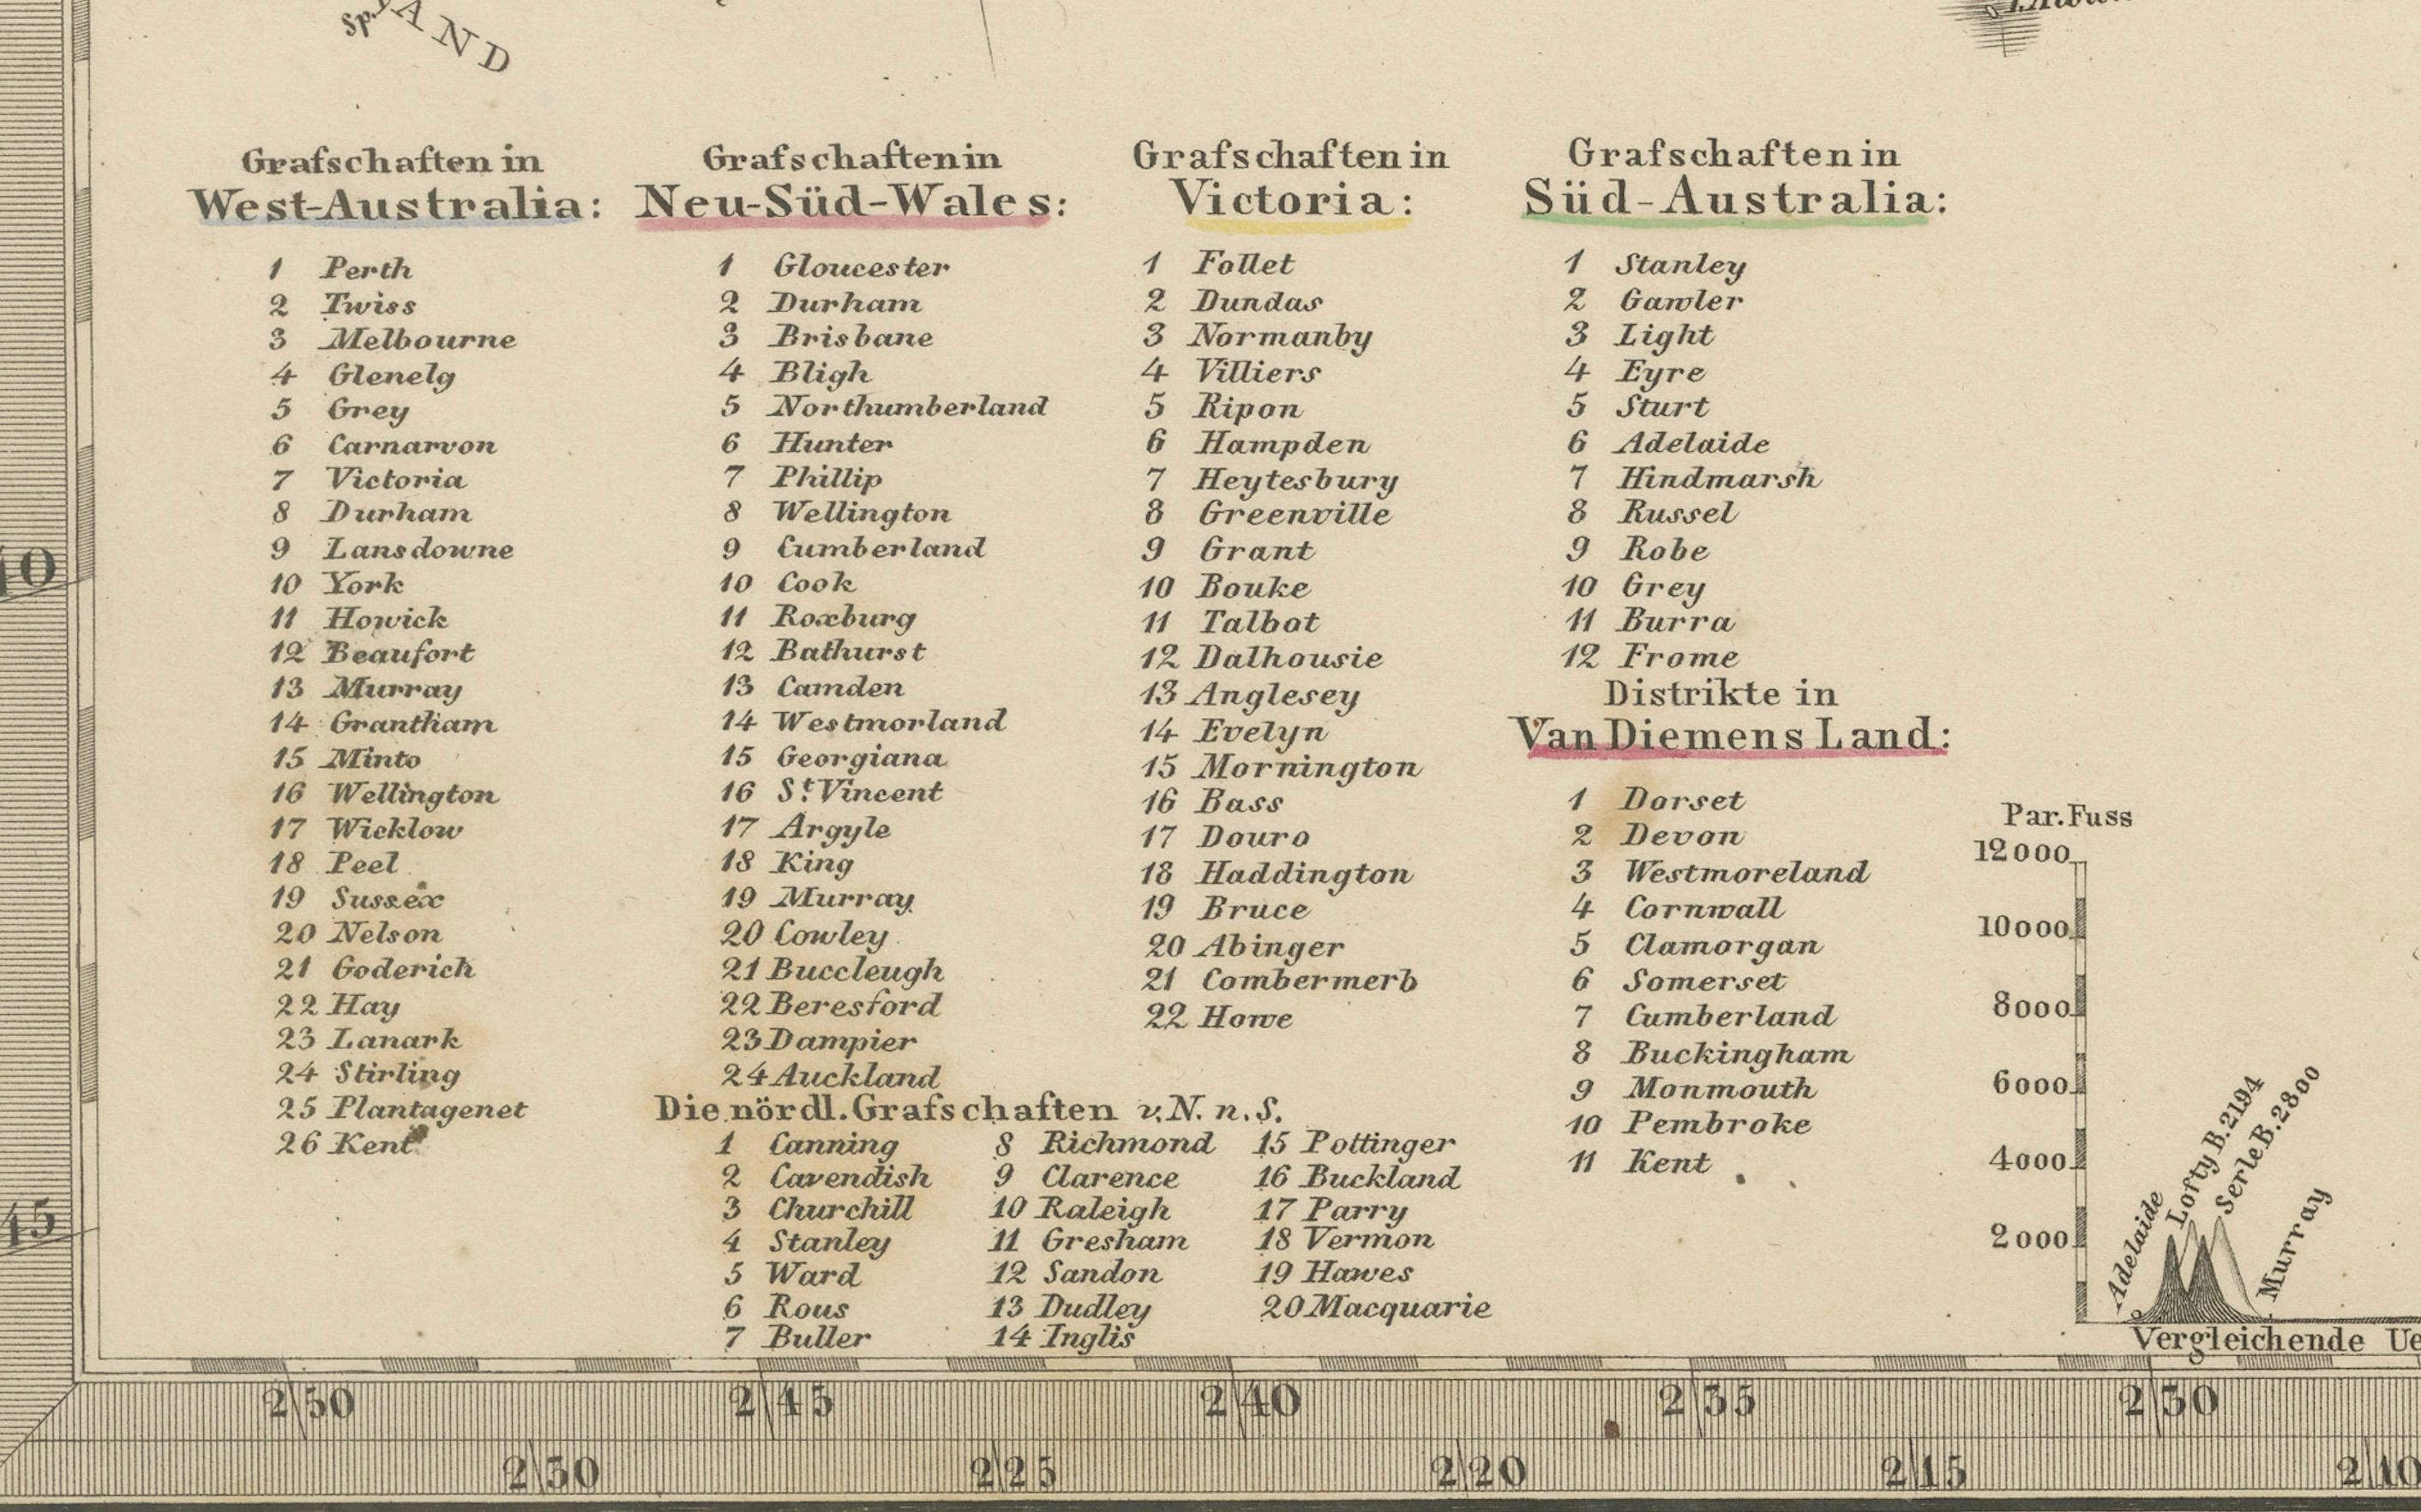 Sp.
LAND
Grafschaften in
West-Australia:
1 Perth
2 Twiss
3 Melbourne
4 Glenelg
5 Grey
6 Carnarvon
7 Victoria
8 Durham
9 Lansdowne
10 York
11 Howick
12 Beaufort
13 Murray
14 Grantham
15 Minto
16 Wellington
17 Wicklow
18 Peel
19 Sussex
20 Nelson
21 Goderich
22 Hay
23 Lanark
24 Stirling
25 Plantagenet
26 Kent
Grafschaften in
Neu-Süd-Wales:
1 Gloucester
2 Durham
3 Brisbane
4 Bligh
5 Northumberland
6 Hunter
7 Phillip
8 Wellington
9 Cumberland
10 Cook
11 Roxburg
12 Bathurst
13 Camden
14 Westmorland
15 Georgiana
16 St. Vincent
17 Argyle
18 King
19 Murray
20 Cowley
21 Buccleugh
22 Beresford
23 Dampier
24 Auckland
Die nördl. Grafschaften v. N. n. S.
1 Canning
2 Cavendish
3 Churchill
4 Stanley
5 Ward
6 Rous
7 Buller
8 Richmond
9 Clarence
10 Raleigh
11 Gresham
12 Sandon
13 Dudley
14 Inglis
15 Pottinger
16 Buckland
17 Parry
18 Vermon
19 Hawes
20 Macquarie
Grafschaften in
Victoria:
1 Follet
2 Dundas
3 Normanby
4 Villiers
5 Ripon
6 Hampden
7 Heytesbury
8 Greenville
9 Grant
10 Bouke
11 Talbot
12 Dalhousie
13 Anglesey
14 Evelyn
15 Mornington
16 Bass
17 Douro
18 Haddington
19 Bruce
20 Abinger
21 Combermerb
22 Howe
Grafschaften in
Süd-Australia:
1 Stanley
2 Gawler
3 Light
4 Eyre
5 Sturt
6 Adelaide
7 Hindmarsh
8 Russel
9 Robe
10 Grey
11 Burra
12 Frome
Distrikte in
Van Diemens Land:
1 Dorset
2 Devon
3 Westmoreland
4 Cornwall
5 Clamorgan
6 Somerset
7 Cumberland
8 Buckingham
9 Monmouth
10 Pembroke
11 Kent
Par. Fuss
12000
10000
8000
6000
4000
2000
Adelaide
Lofty B. 2194
Serle B. 2800
Murray
Vergleichende
45
250 245 240 235 230
230 225 220 215 210